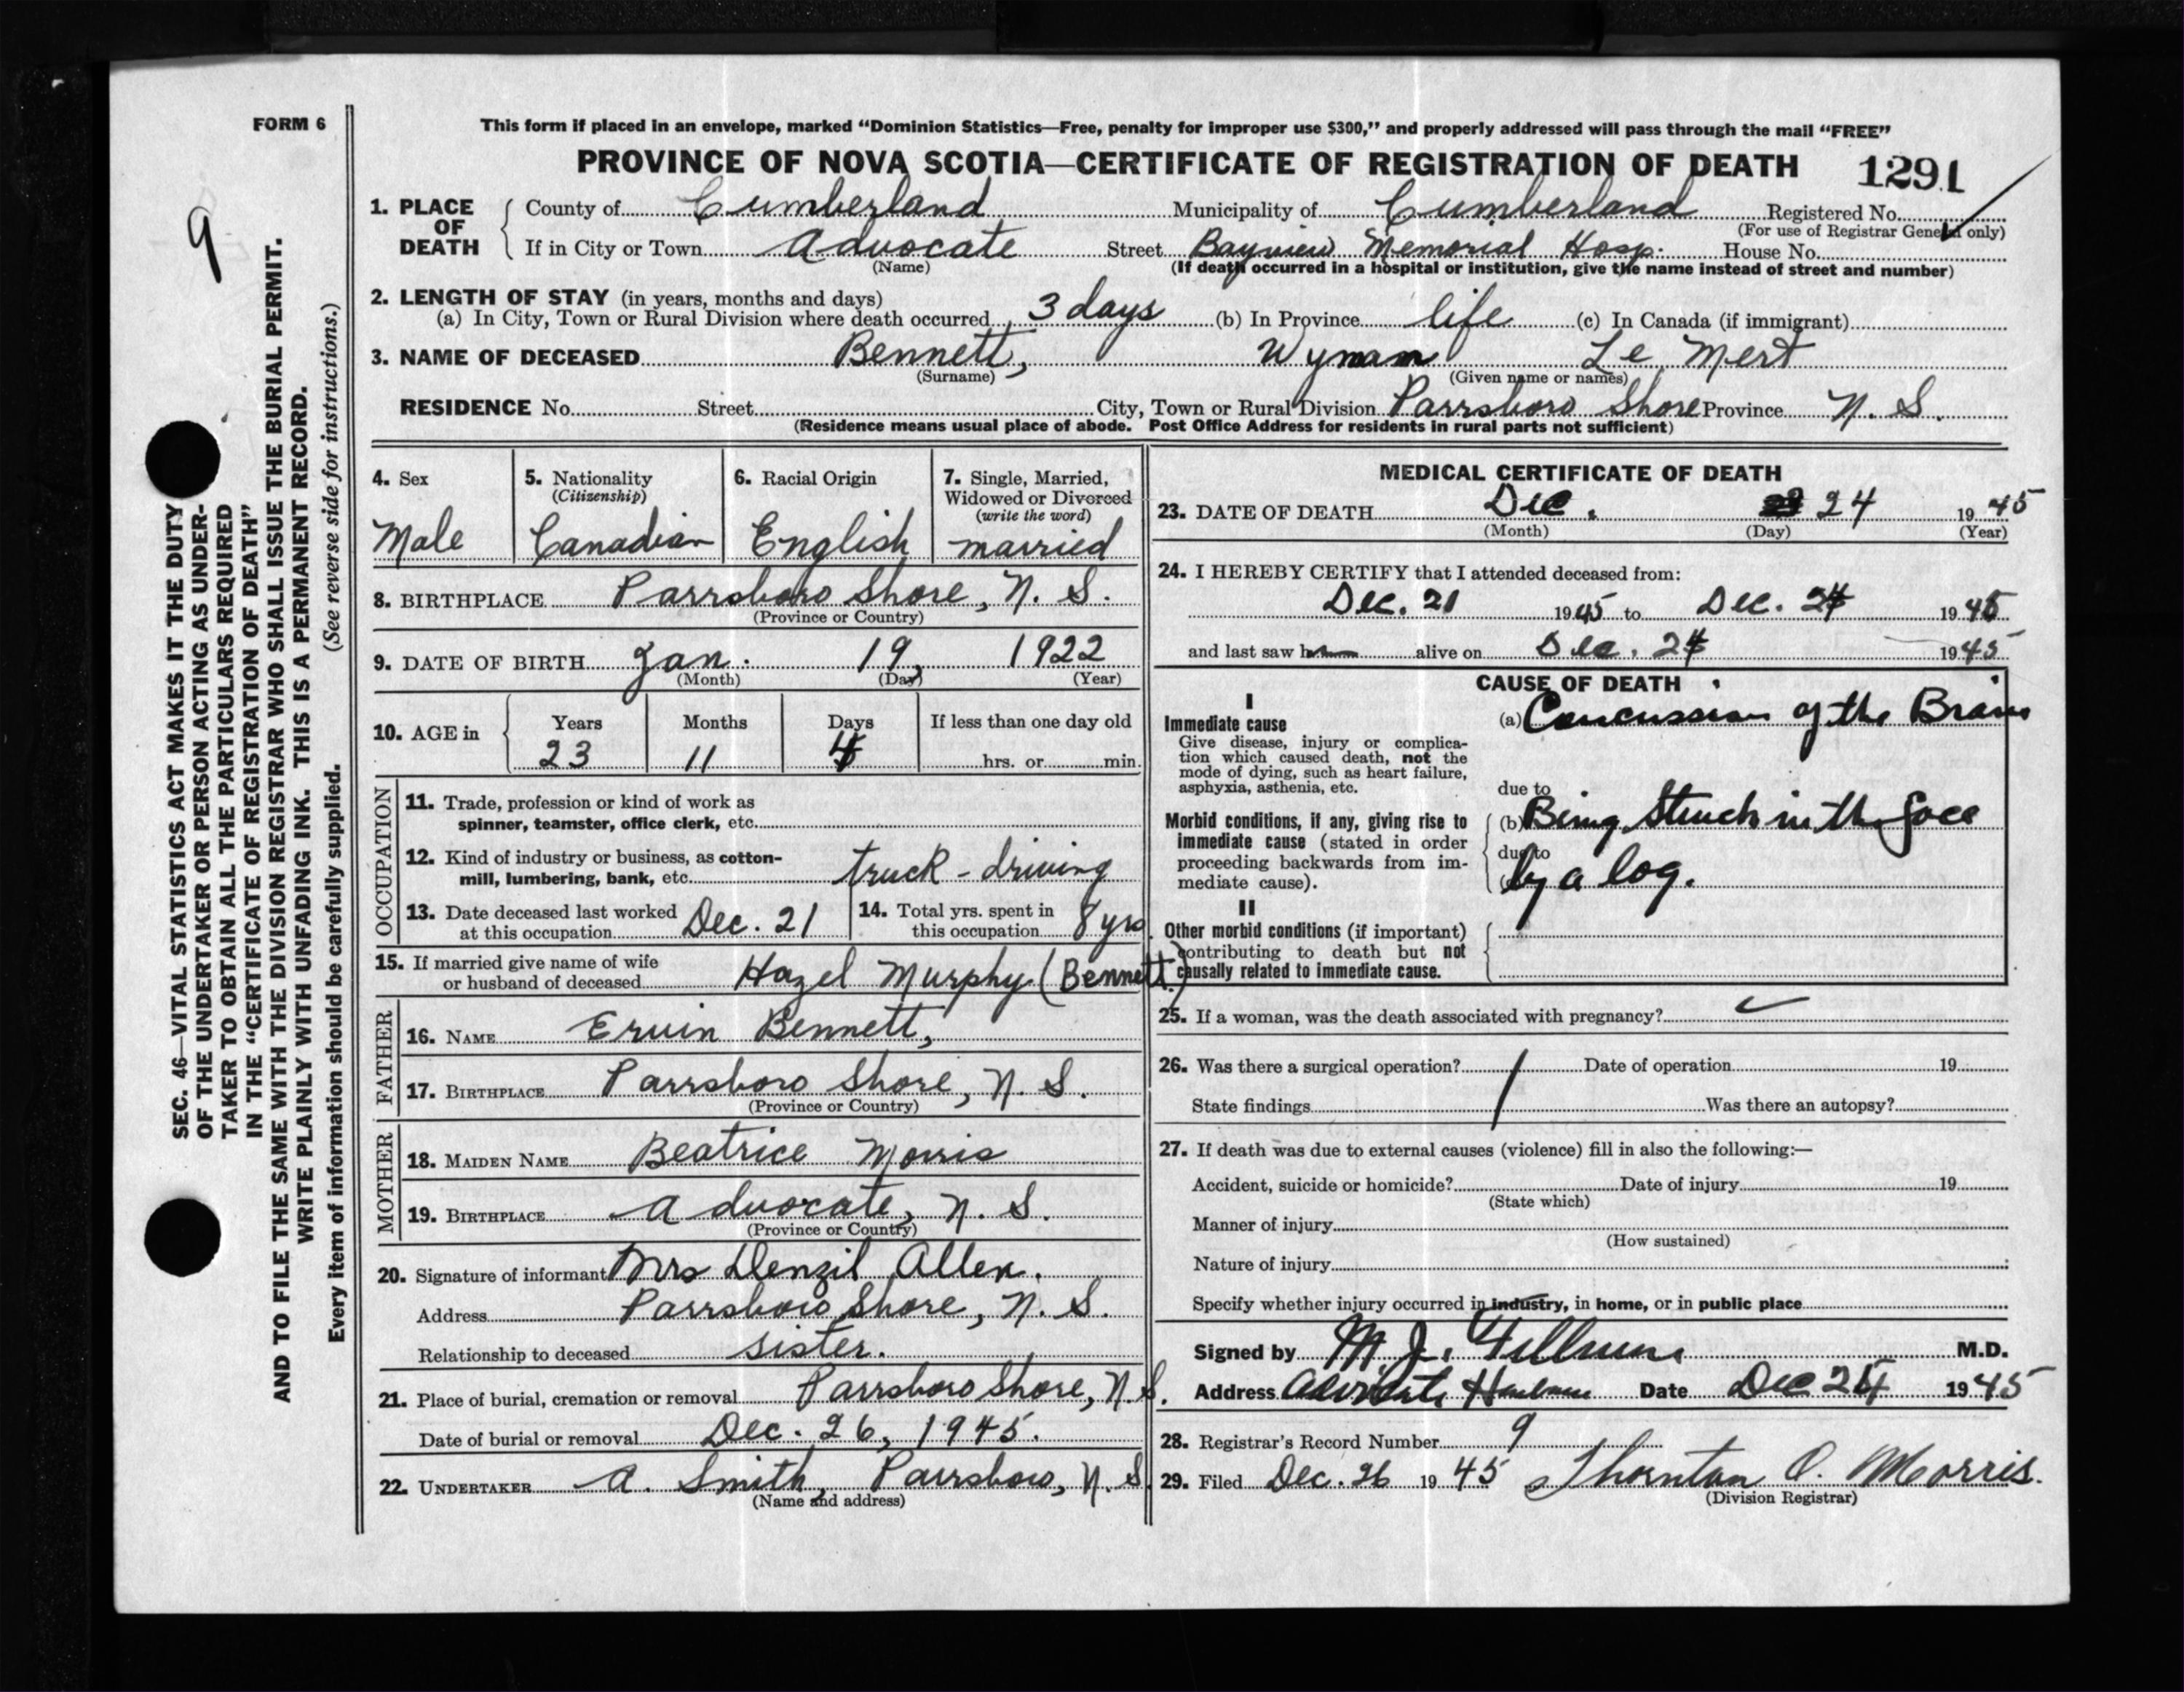 FORM 6
This form if placed in an envelope, marked "Dominion Statistics—Free, penalty for improper use $300," and properly addressed will pass through the mail "FREE"
PROVINCE OF NOVA SCOTIA—CERTIFICATE OF REGISTRATION OF DEATH 1291
9
SEC. 46—VITAL STATISTICS ACT MAKES IT THE DUTY
OF THE UNDERTAKER OR PERSON ACTING AS UNDER-
TAKER TO OBTAIN ALL THE PARTICULARS REQUIRED
IN THE "CERTIFICATE OF REGISTRATION OF DEATH"
AND TO FILE THE SAME WITH THE DIVISION REGISTRAR WHO SHALL ISSUE THE BURIAL PERMIT.
WRITE PLAINLY WITH UNFADING INK. THIS IS A PERMANENT RECORD.
Every item of information should be carefully supplied. (See reverse side for instructions.)
1. PLACE OF DEATH County of Cumberland Municipality of Cumberland Registered No.
(For use of Registrar General only)
If in City or Town Advocate Street Bayview Memorial Hosp. House No.
(Name) (If death occurred in a hospital or institution, give the name instead of street and number)
2. LENGTH OF STAY (in years, months and days)
(a) In City, Town or Rural Division where death occurred 3 days (b) In Province life (c) In Canada (if immigrant)
3. NAME OF DECEASED Bennett, Wyman Le Mert
(Surname) (Given name or names)
RESIDENCE No. Street City, Town or Rural Division Parrsboro Shore Province N. S.
(Residence means usual place of abode. Post Office Address for residents in rural parts not sufficient)
4. Sex
Male
5. Nationality
(Citizenship)
Canadian
6. Racial Origin
English
7. Single, Married,
Widowed or Divorced
(write the word)
married
8. BIRTHPLACE Parrsboro Shore, N. S.
(Province or Country)
9. DATE OF BIRTH Jan. 19, 1922
(Month) (Day) (Year)
10. AGE in Years Months Days If less than one day old
23 11 hrs. or min.
OCCUPATION
11. Trade, profession or kind of work as
spinner, teamster, office clerk, etc.
12. Kind of industry or business, as cotton-
mill, lumbering, bank, etc. truck-driving
13. Date deceased last worked
at this occupation Dec. 21
14. Total yrs. spent in
this occupation 8 yrs.
15. If married give name of wife
or husband of deceased Hazel Murphy (Bennett)
FATHER
16. NAME Ervin Bennett,
17. BIRTHPLACE Parrsboro Shore, N. S.
(Province or Country)
MOTHER
18. MAIDEN NAME Beatrice Morris
19. BIRTHPLACE Advocate, N. S.
(Province or Country)
20. Signature of informant Mrs Denzil Allen.
Address Parrsboro Shore, N. S.
Relationship to deceased sister.
21. Place of burial, cremation or removal Parrsboro Shore, N. S.
Date of burial or removal Dec. 26, 1945.
22. UNDERTAKER A. Smith, Parrsboro, N. S.
(Name and address)
MEDICAL CERTIFICATE OF DEATH
23. DATE OF DEATH Dec. 24 1945
(Month) (Day) (Year)
24. I HEREBY CERTIFY that I attended deceased from:
Dec. 21 1945 to Dec. 24 1945
and last saw h alive on Dec. 24 1945
CAUSE OF DEATH
I
Immediate cause
Give disease, injury or complica-
tion which caused death, not the
mode of dying, such as heart failure,
asphyxia, asthenia, etc.
(a) Concussion of the Brain
due to
Morbid conditions, if any, giving rise to
immediate cause (stated in order
proceeding backwards from im-
mediate cause).
(b) Being Struck in the face
due to
(c) by a log.
II
Other morbid conditions (if important)
contributing to death but not
causally related to immediate cause.
25. If a woman, was the death associated with pregnancy?
26. Was there a surgical operation? Date of operation 19
State findings Was there an autopsy?
27. If death was due to external causes (violence) fill in also the following:—
Accident, suicide or homicide? Date of injury 19
(State which)
Manner of injury
(How sustained)
Nature of injury
Specify whether injury occurred in industry, in home, or in public place
Signed by M. J. M.D.
Address Advocate Harbour Date Dec 1945
28. Registrar's Record Number 9
29. Filed Dec. 26 1945 Thornton O. Morris.
(Division Registrar)